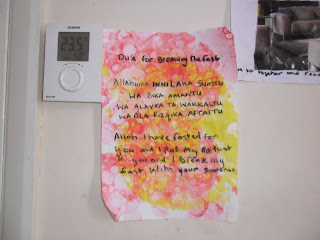 23.5
Du'a for Breaking the Fast
Allahuma INNILAKA SUMTU
WA BIKA AMANTU
WA ALAYKA TAWAKKALTU
WA ALA RIZQIKA AFTARTU
Allah I have fasted for
you and I put my trust
in you and I break my
fast with your
together and